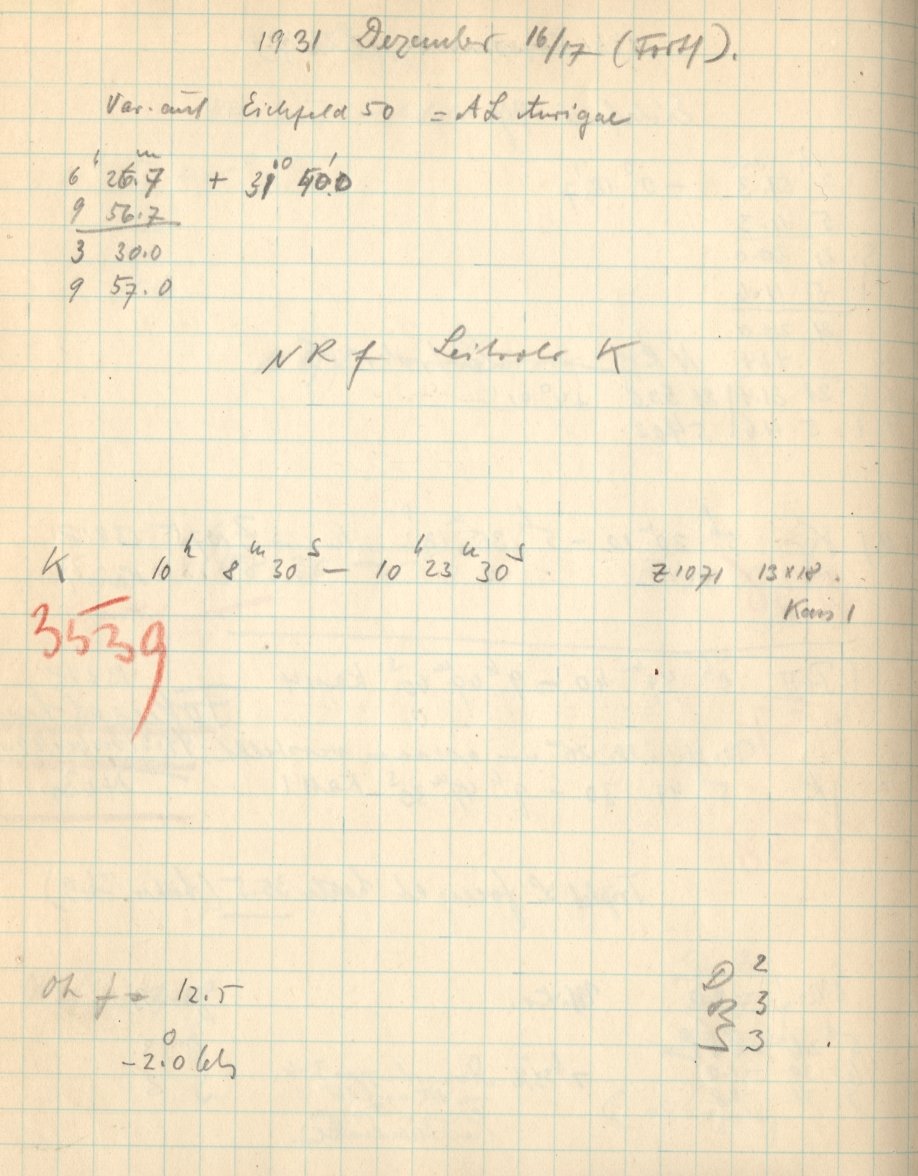 1931 Dezember 16/17 (Forts).
Var. aus Eichfeld 50 = AL Aurigae
6 h 26.7 m + 31° 40.0'
9 56.7
3 30.0
9 57.0
NR f Leitrohr K
K 10 h 8 m 30 s — 10 h 23 m 30 s Z 1071 13x18.
Kass 1
3539
Oh f = 12.5
-2.0°
D 2
R 3
S 3